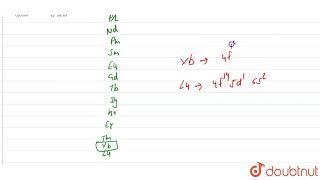 Nd
Pm
Sm
Eu
Gd
Tb
Dy
Ho
Er
Tm
Yb
Lu
Yb → 4f
Lu → 4f14 5d1 6s2
doubtnut